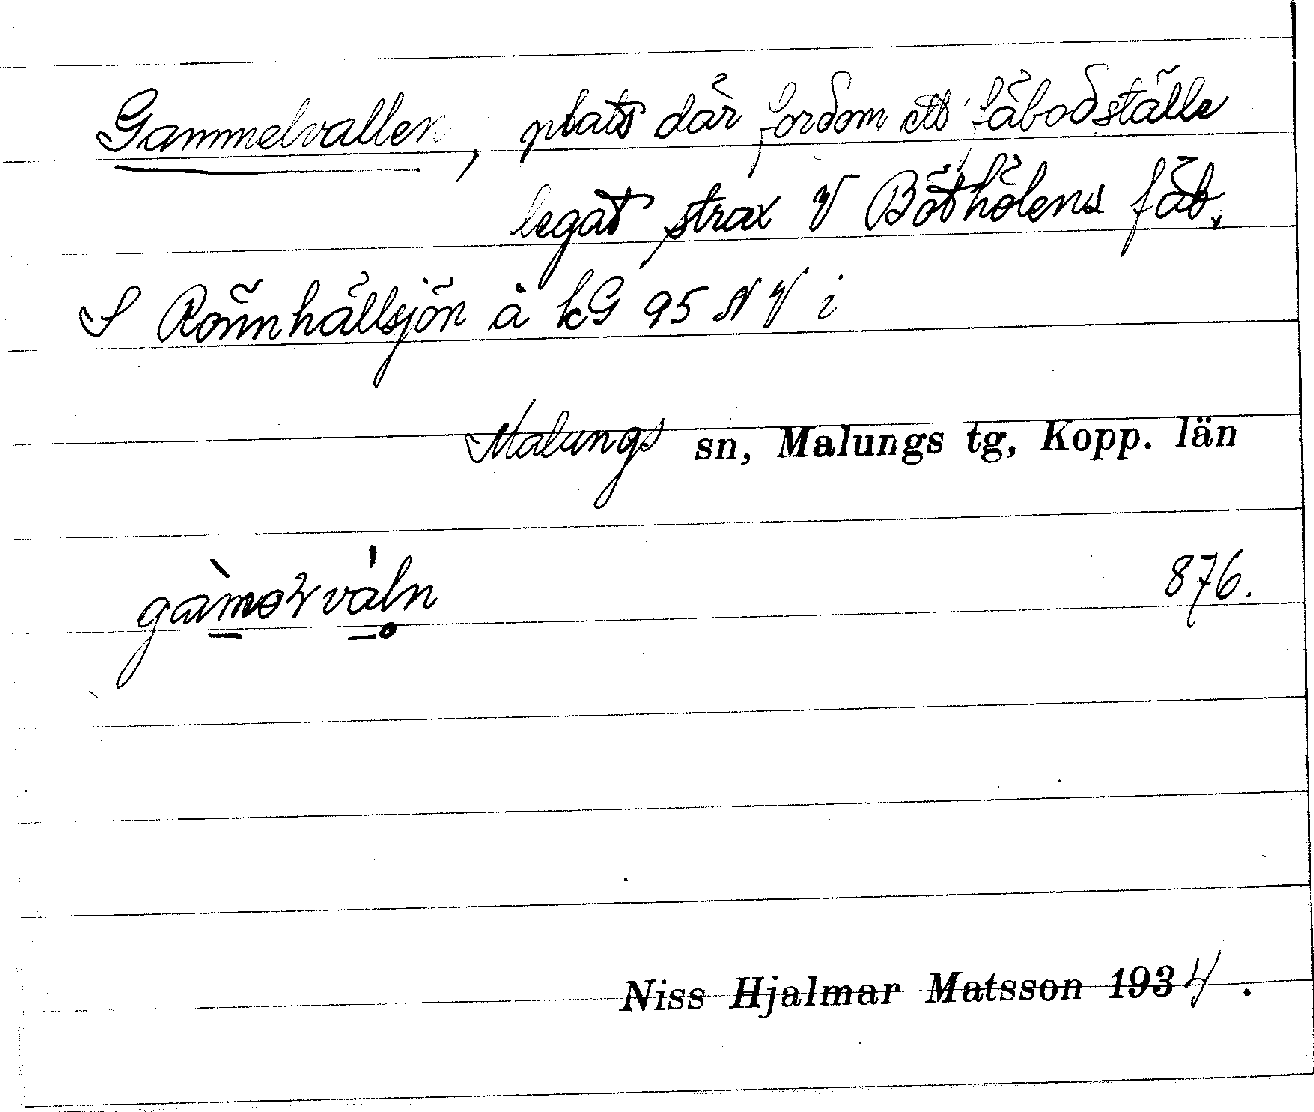 Gammelvallen, plats där fordom ett fäbodställe
legat strax V Böthölens fäb.
S Rönnhällsjön å kG 95 NV i
Malungs sn, Malungs tg, Kopp. län
876.
Niss Hjalmar Matsson 1934.